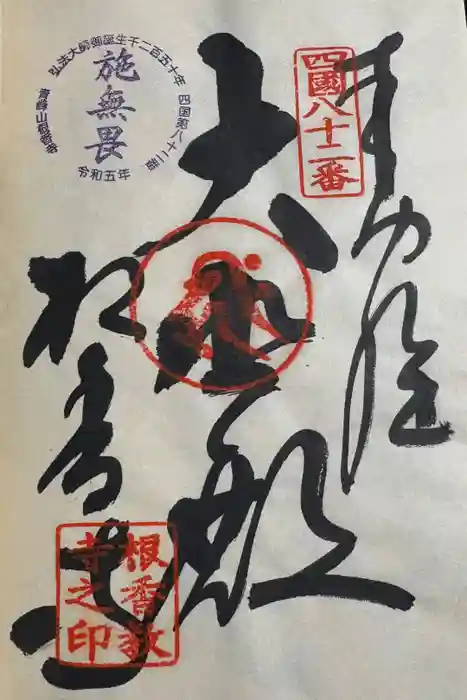 奉拝
四國八十二番
大悲殿
根香寺
根香教寺之印
弘法大師御誕生千二百五十年
四国第八十二番
青峰山根香寺
施無畏
令和五年